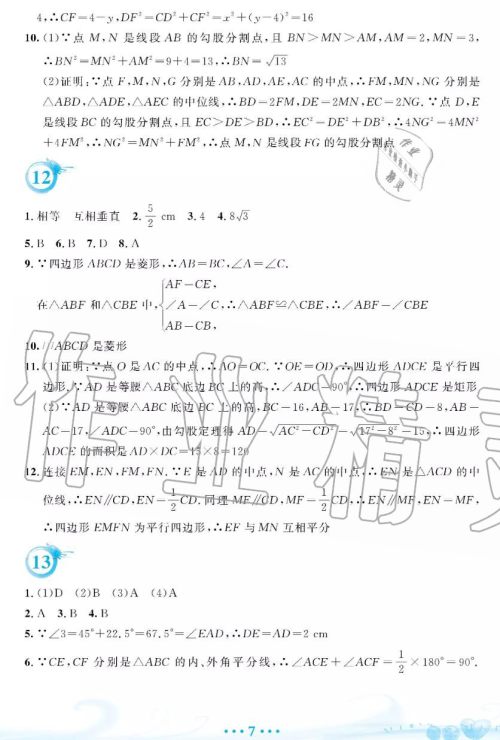 4,∴CF=4-y,DF²=CD²+CF²=x²+(y-4)²=16
10. (1)∵点 M,N 是线段 AB 的勾股分割点,且 BN>MN>AM,AM=2,MN=3,
∴BN²=MN²+AM²=9+4=13,∴BN=√13
(2)证明:∵点 F,M,N,G 分别是 AB,AD,AE,AC 的中点,∴FM,MN,NG 分别是
△ABD,△ADE,△AEC 的中位线,∴BD=2FM,DE=2MN,EC=2NG.∵点 D,E
是线段 BC 的勾股分割点,且 EC>DE>BD,∴EC²=DE²+DB²,∴4NG²=4MN²
+4FM²,∴NG²=MN²+FM²,∴点 M,N 是线段 FG 的勾股分割点
作业
精灵
12
1. 相等 互相垂直 2. 5/2 cm 3. 4 4. 8√3
5. B 6. B 7. D 8. A
9. ∵四边形 ABCD 是菱形,∴AB=BC,∠A=∠C.
在△ABF 和△CBE 中,{AF=CE,
∠A=∠C,∴△ABF≌△CBE,∴∠ABF=∠CBE
AB=CB,
10. ▱ABCD 是菱形
11. (1)证明:∵点 O 是 AC 的中点,∴AO=OC.∵OE=OD,∴四边形 ADCE 是平行四
边形.∵AD 是等腰△ABC 底边 BC 上的高,∴∠ADC=90°,∴四边形 ADCE 是矩形
(2)∵AD 是等腰△ABC 底边 BC 上的高,BC=16,AB=17,∴BD=CD=8,AB=
AC=17,∠ADC=90°,由勾股定理得 AD=√(AC²-CD²)=√(17²-8²)=15,∴四边形
ADCE 的面积是 AD×DC=15×8=120
12. 连接 EM,EN,FM,FN.∵E 是 AD 的中点,N 是 AC 的中点,∴EN 是△ACD 的中
位线,∴EN∥CD,EN=1/2 CD.同理 MF∥CD,MF=1/2 CD,∴EN∥MF,EN=MF,
∴四边形 EMFN 为平行四边形,∴EF 与 MN 互相平分
作业精灵
13
1. (1)D (2)B (3)A (4)A
2. A 3. B 4. B
5. ∵∠3=45°+22.5°=67.5°=∠EAD,∴DE=AD=2 cm
6. ∵CE,CF 分别是△ABC 的内、外角平分线,∴∠ACE+∠ACF=1/2×180°=90°.
7